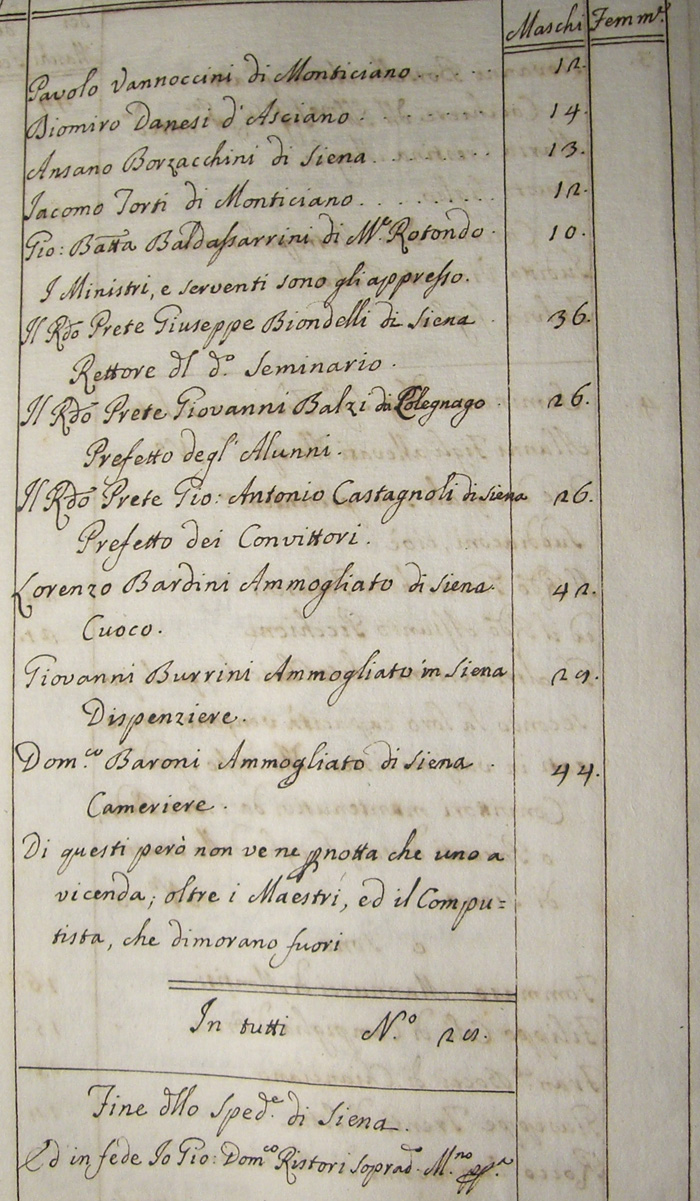 Maschi Femm.e
Pavolo Vannoccini di Monticiano . . . . . 12.
Biomiro Danesi d'Asciano . . . . . . . . 14.
Ansano Borzacchini di Siena . . . . . . . 13.
Iacomo Torti di Monticiano . . . . . . . . . 12.
Gio: Batta Baldassarrini di M.e Rotondo . 10.
I Ministri, e serventi sono gli appresso.
Il Rdo Prete Giuseppe Biondelli di Siena 36.
Rettore dl d.o Seminario .
Il Rdo Prete Giovanni Balzi da Colegnago . 26.
Prefetto degl' Alunni .
Il Rdo Prete Gio: Antonio Castagnoli di Siena 26.
Prefetto dei Convittori .
Lorenzo Bardini Ammogliato di Siena . 42.
Cuoco .
Giovanni Burrini Ammogliato in Siena 29.
Dispenziere .
Dom.co Baroni Ammogliato di Siena . 44.
Cameriere .
Di questi però non ve ne pnotta che uno a
vicenda; oltre i Maestri, ed il Compu=
tista, che dimorano fuori
In tutti N.o 29.
Fine dllo Sped.e di Siena .
Ed in fede Io Gio: Dom.co Ristori soprad.